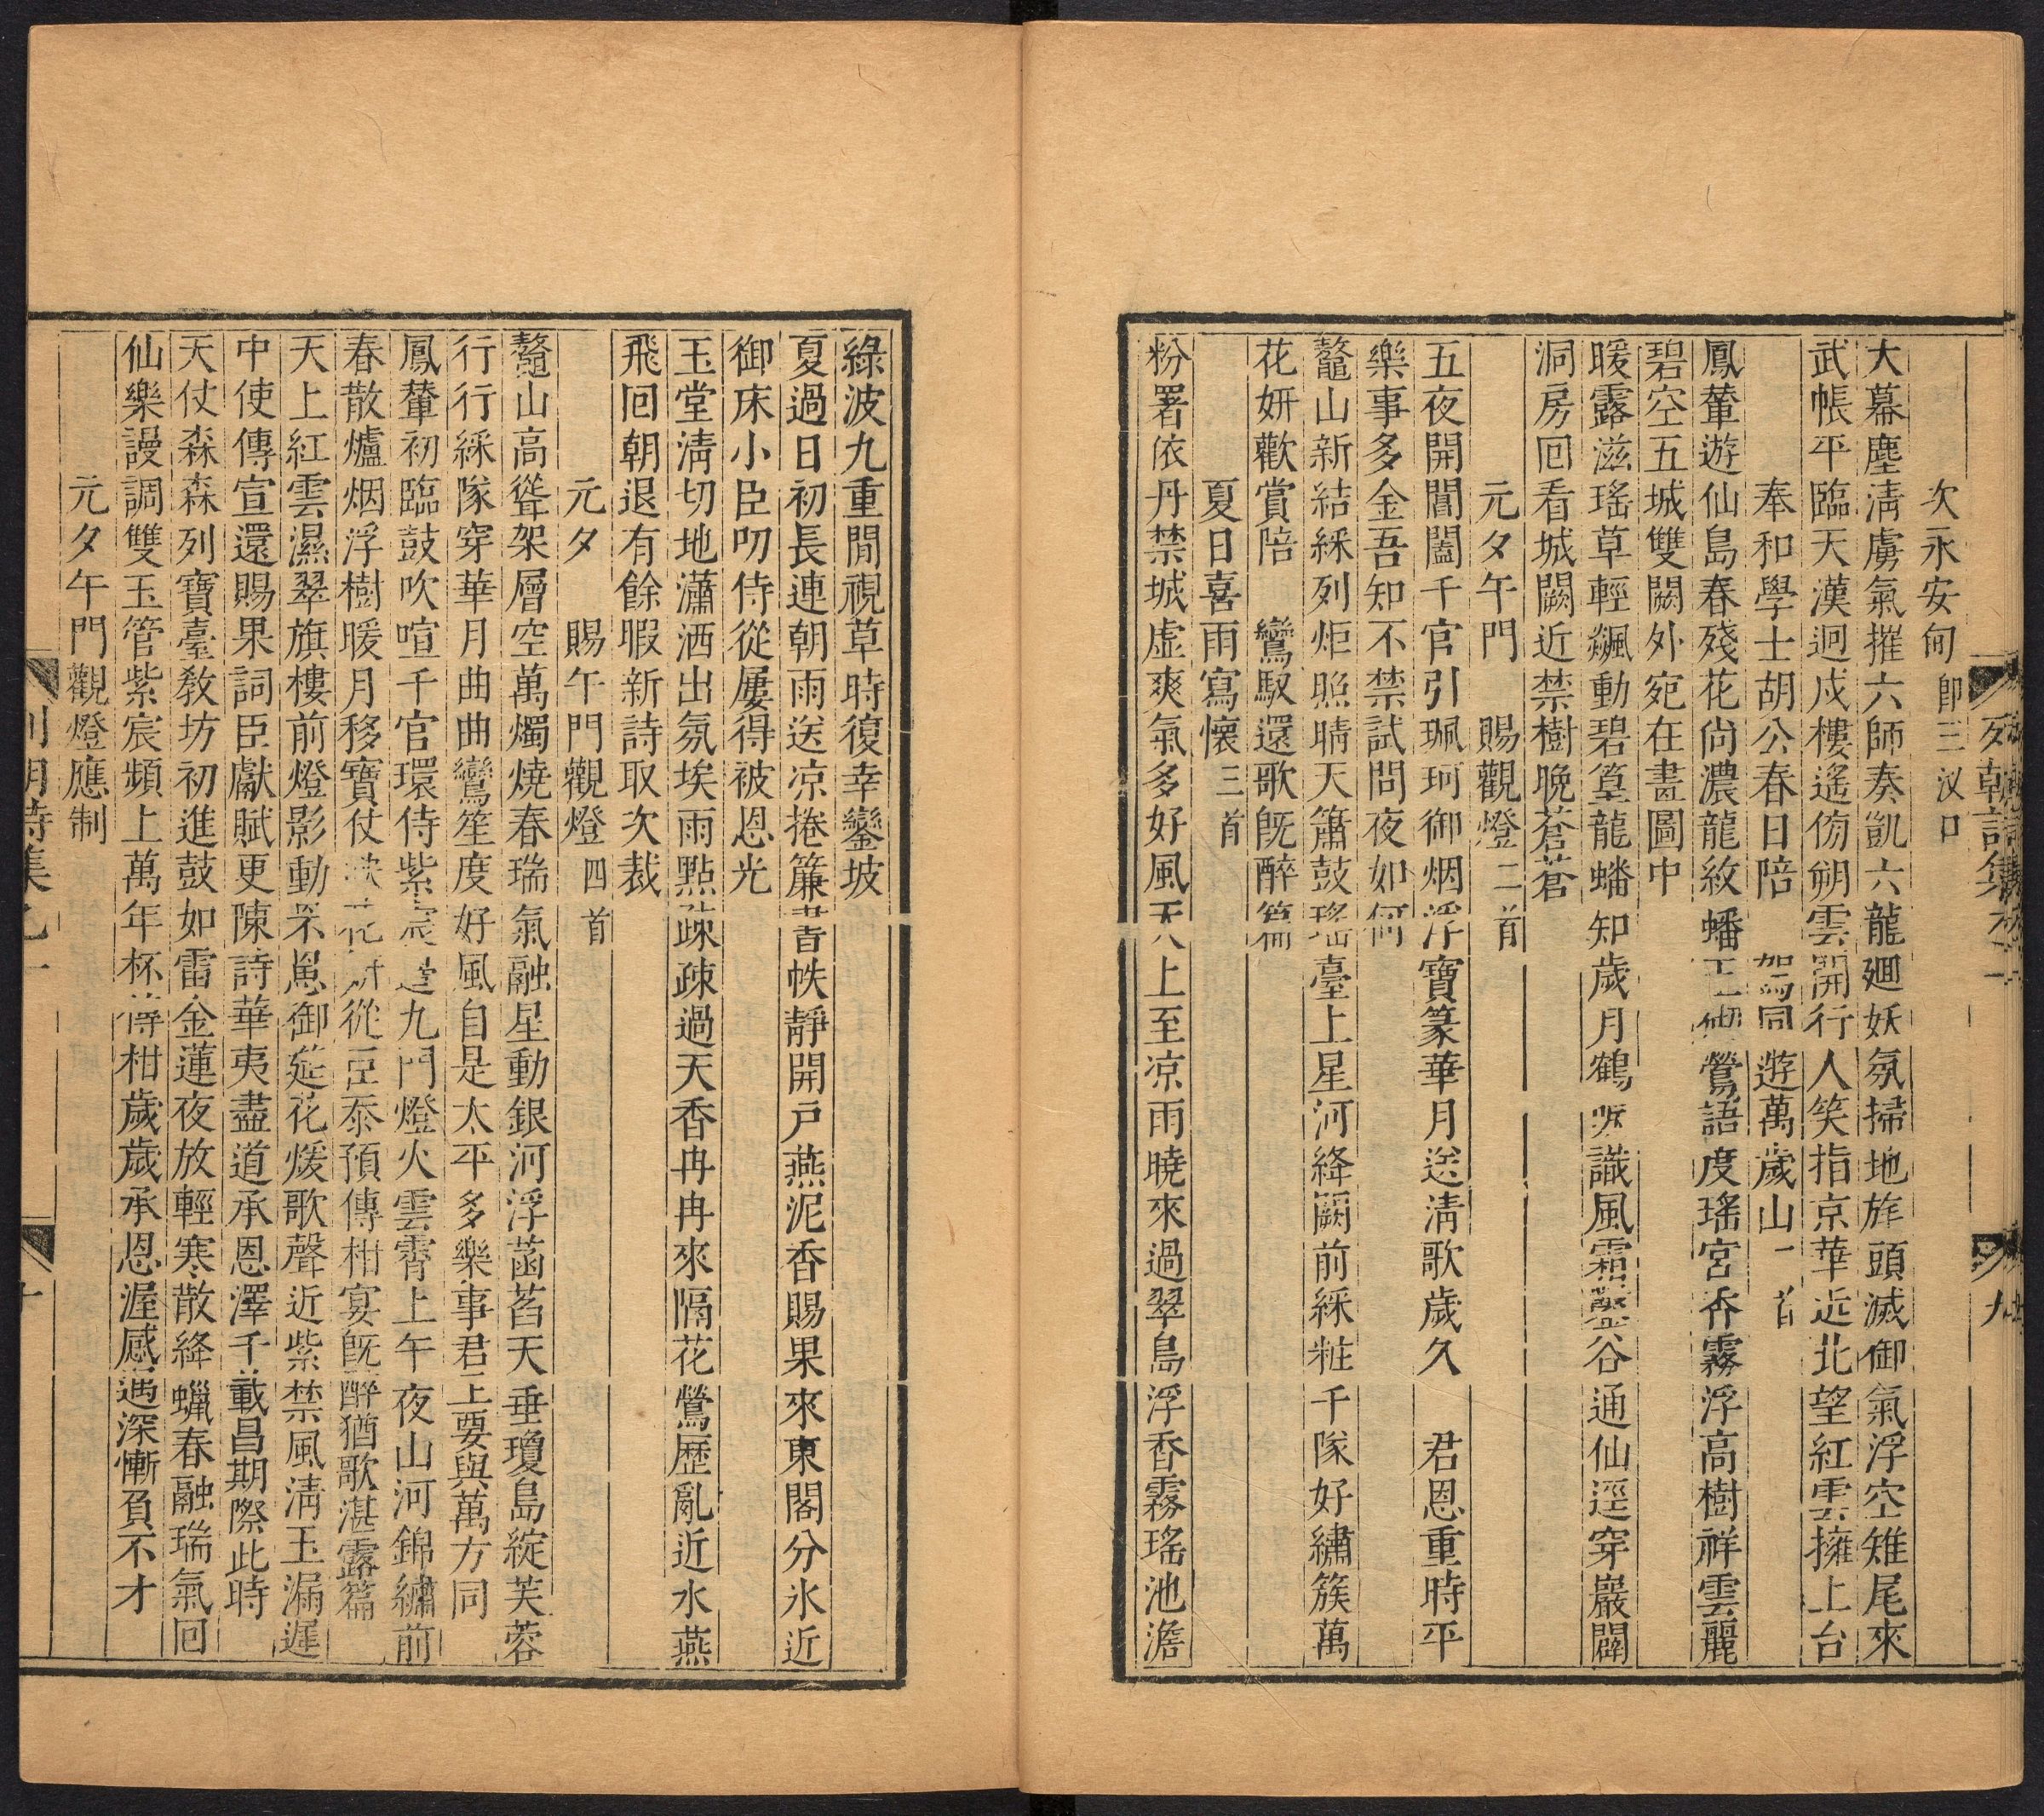 次永安甸即三汊口
大幕塵淸虜氣摧六師奏凱六龍廻妖氛掃地旄頭滅御氣浮空雉尾來
武帳平臨天漢迥戍樓遙傍朔雲開行人笑指京華近北望紅雲擁上台
奉和學士胡公春日陪 駕同遊萬歲山
鳳輦遊仙島春殘花尙濃龍紋蟠玉 鶯語度瑤宮香霧浮高樹祥雲麗
碧空五城雙闕外宛在畫圖中
暖露滋瑤草輕飊動碧篁龍蟠知歲月鶴 識風霜 谷通仙逕穿巖闢
洞房回看城闕近禁樹晚蒼蒼
元夕午門 賜觀燈二首
五夜開閶闔千官引珮珂御烟浮寶篆華月送淸歌歲久 君恩重時平
樂事多金吾知不禁試問夜如何
鼇山新結綵列炬照晴天簫鼓瑤臺上星河絳闕前綵粧千隊好繡簇萬
花妍歡賞陪 鸞馭還歌旣醉篇
夏日喜雨寫懷三首
粉署依丹禁城虛爽氣多好風天上至凉雨曉來過翠島浮香霧瑤池澹
綠波九重閒視草時復幸鑾坡
夏過日初長連朝雨送凉捲簾書帙靜開戶燕泥香賜果來東閣分氷近
御床小臣叨侍從屢得被恩光
玉堂淸切地瀟洒出氛埃雨點疎疎過天香冉冉來隔花鶯歷亂近水燕
飛回朝退有餘暇新詩取次裁
元夕 賜午門觀燈四首
鼇山高聳架層空萬燭燒春瑞氣融星動銀河浮菡萏天垂瓊島綻芙蓉
行行綵隊穿華月曲曲鸞笙度好風自是太平多樂事君王要與萬方同
鳳輦初臨鼓吹喧千官環侍紫宸 九門燈火雲霄上午夜山河錦繡前
春散爐烟浮樹暖月移寶仗 花 從臣忝預傳柑宴旣醉猶歌湛露篇
天上紅雲濕翠旗樓前燈影動罘罳御筵花煖歌聲近紫禁風淸玉漏遲
中使傳宣還賜果詞臣獻賦更陳詩華夷盡道承恩澤千載昌期際此時
天仗森森列寶臺敎坊初進鼓如雷金蓮夜放輕寒散絳蠟春融瑞氣回
仙樂謾調雙玉管紫宸頻上萬年杯傳柑歲歲承恩渥感遇深慚負不才
元夕午門觀燈應制